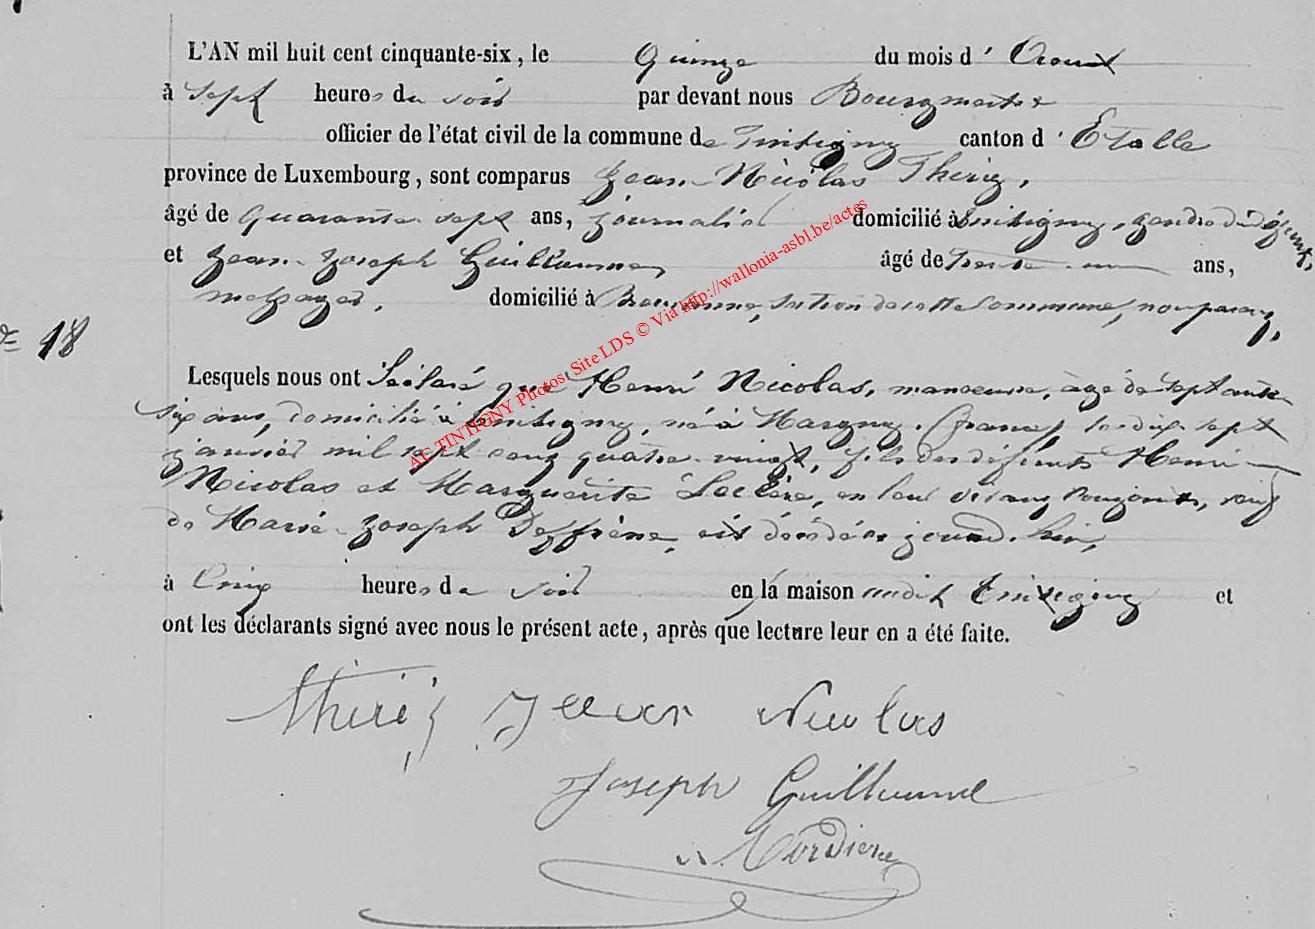 L'AN mil huit cent cinquante-six, le Quinze du mois d' Aout
à sept heures du soir par devant nous Bourgmestre
officier de l'état civil de la commune de Tintigny canton d' Etalle
province de Luxembourg, sont comparus Jean Nicolas Thiriz,
âgé de quarante sept ans, journalier domicilié à Tintigny, gendre du défunt,
et Jean Joseph Guillaume, âgé de trente un ans,
domicilié à section de cette commune, non parent,
N° 18
Lesquels nous ont déclaré que Henri Nicolas, manoeuvre, âgé de septante
six ans, domicilié à Tintigny, né à Margny (france) le dix sept
janvier mil sept cent quatre vingt, fils des défunts Henri
Nicolas et Marguerite Leclère, en leur vivant conjoints, veuf
de Marie Joseph est décédé
à Cinq heures du soir en la maison Tintigny et
ont les déclarants signé avec nous le présent acte, après que lecture leur en a été faite.
AC TINTIGNY Photos: Site LDS © Via http://wallonia-asbl.be/actes
thiriz jean Nicolas
Joseph Guillaume